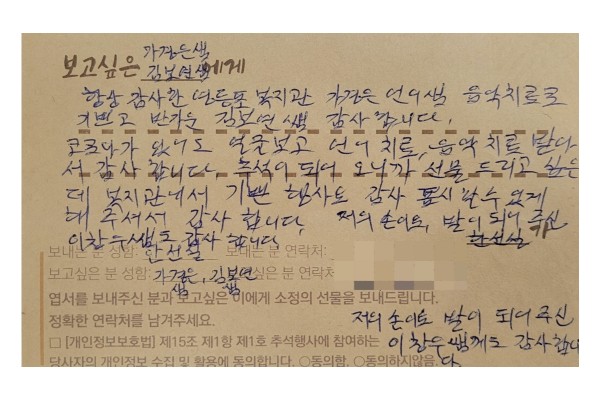 보고싶은 가경은쌤 김보연쌤에게
항상 감사한 영등포 복지관 가경은 언어쌤 음악치료로
기쁘고 반가운 김보연 쌤 감사 합니다.
코로나가 있어도 얼굴보고 언어 치료, 음악 치료 받아
서 감사 합니다. 추석이 되어 오니까 선물 드리고 싶은
데 복지관에서 기쁜 행사도 감사 표시 할 수 있게
해 주셔서 감사 합니다. 저의 손이로, 발이 되어 주신
이창우쌤도 감사 합니다
보내는 분 성함: 안선실 보내는 분 연락처:
보고싶은 분 성함: 가경은쌤, 김보연쌤 보고싶은 분 연락처
엽서를 보내주신 분과 보고싶은 이에게 소정의 선물을 보내드립니다.
정확한 연락처를 남겨주세요.
저의 손이로 발이 되어 주신
□ [개인정보보호법] 제15조 제1항 제1호 추석행사에 참여하는
이창우쌤께도 감사합니다.
당사자의 개인정보 수집 및 활용에 동의합니다. ○동의함, ○동의하지않음